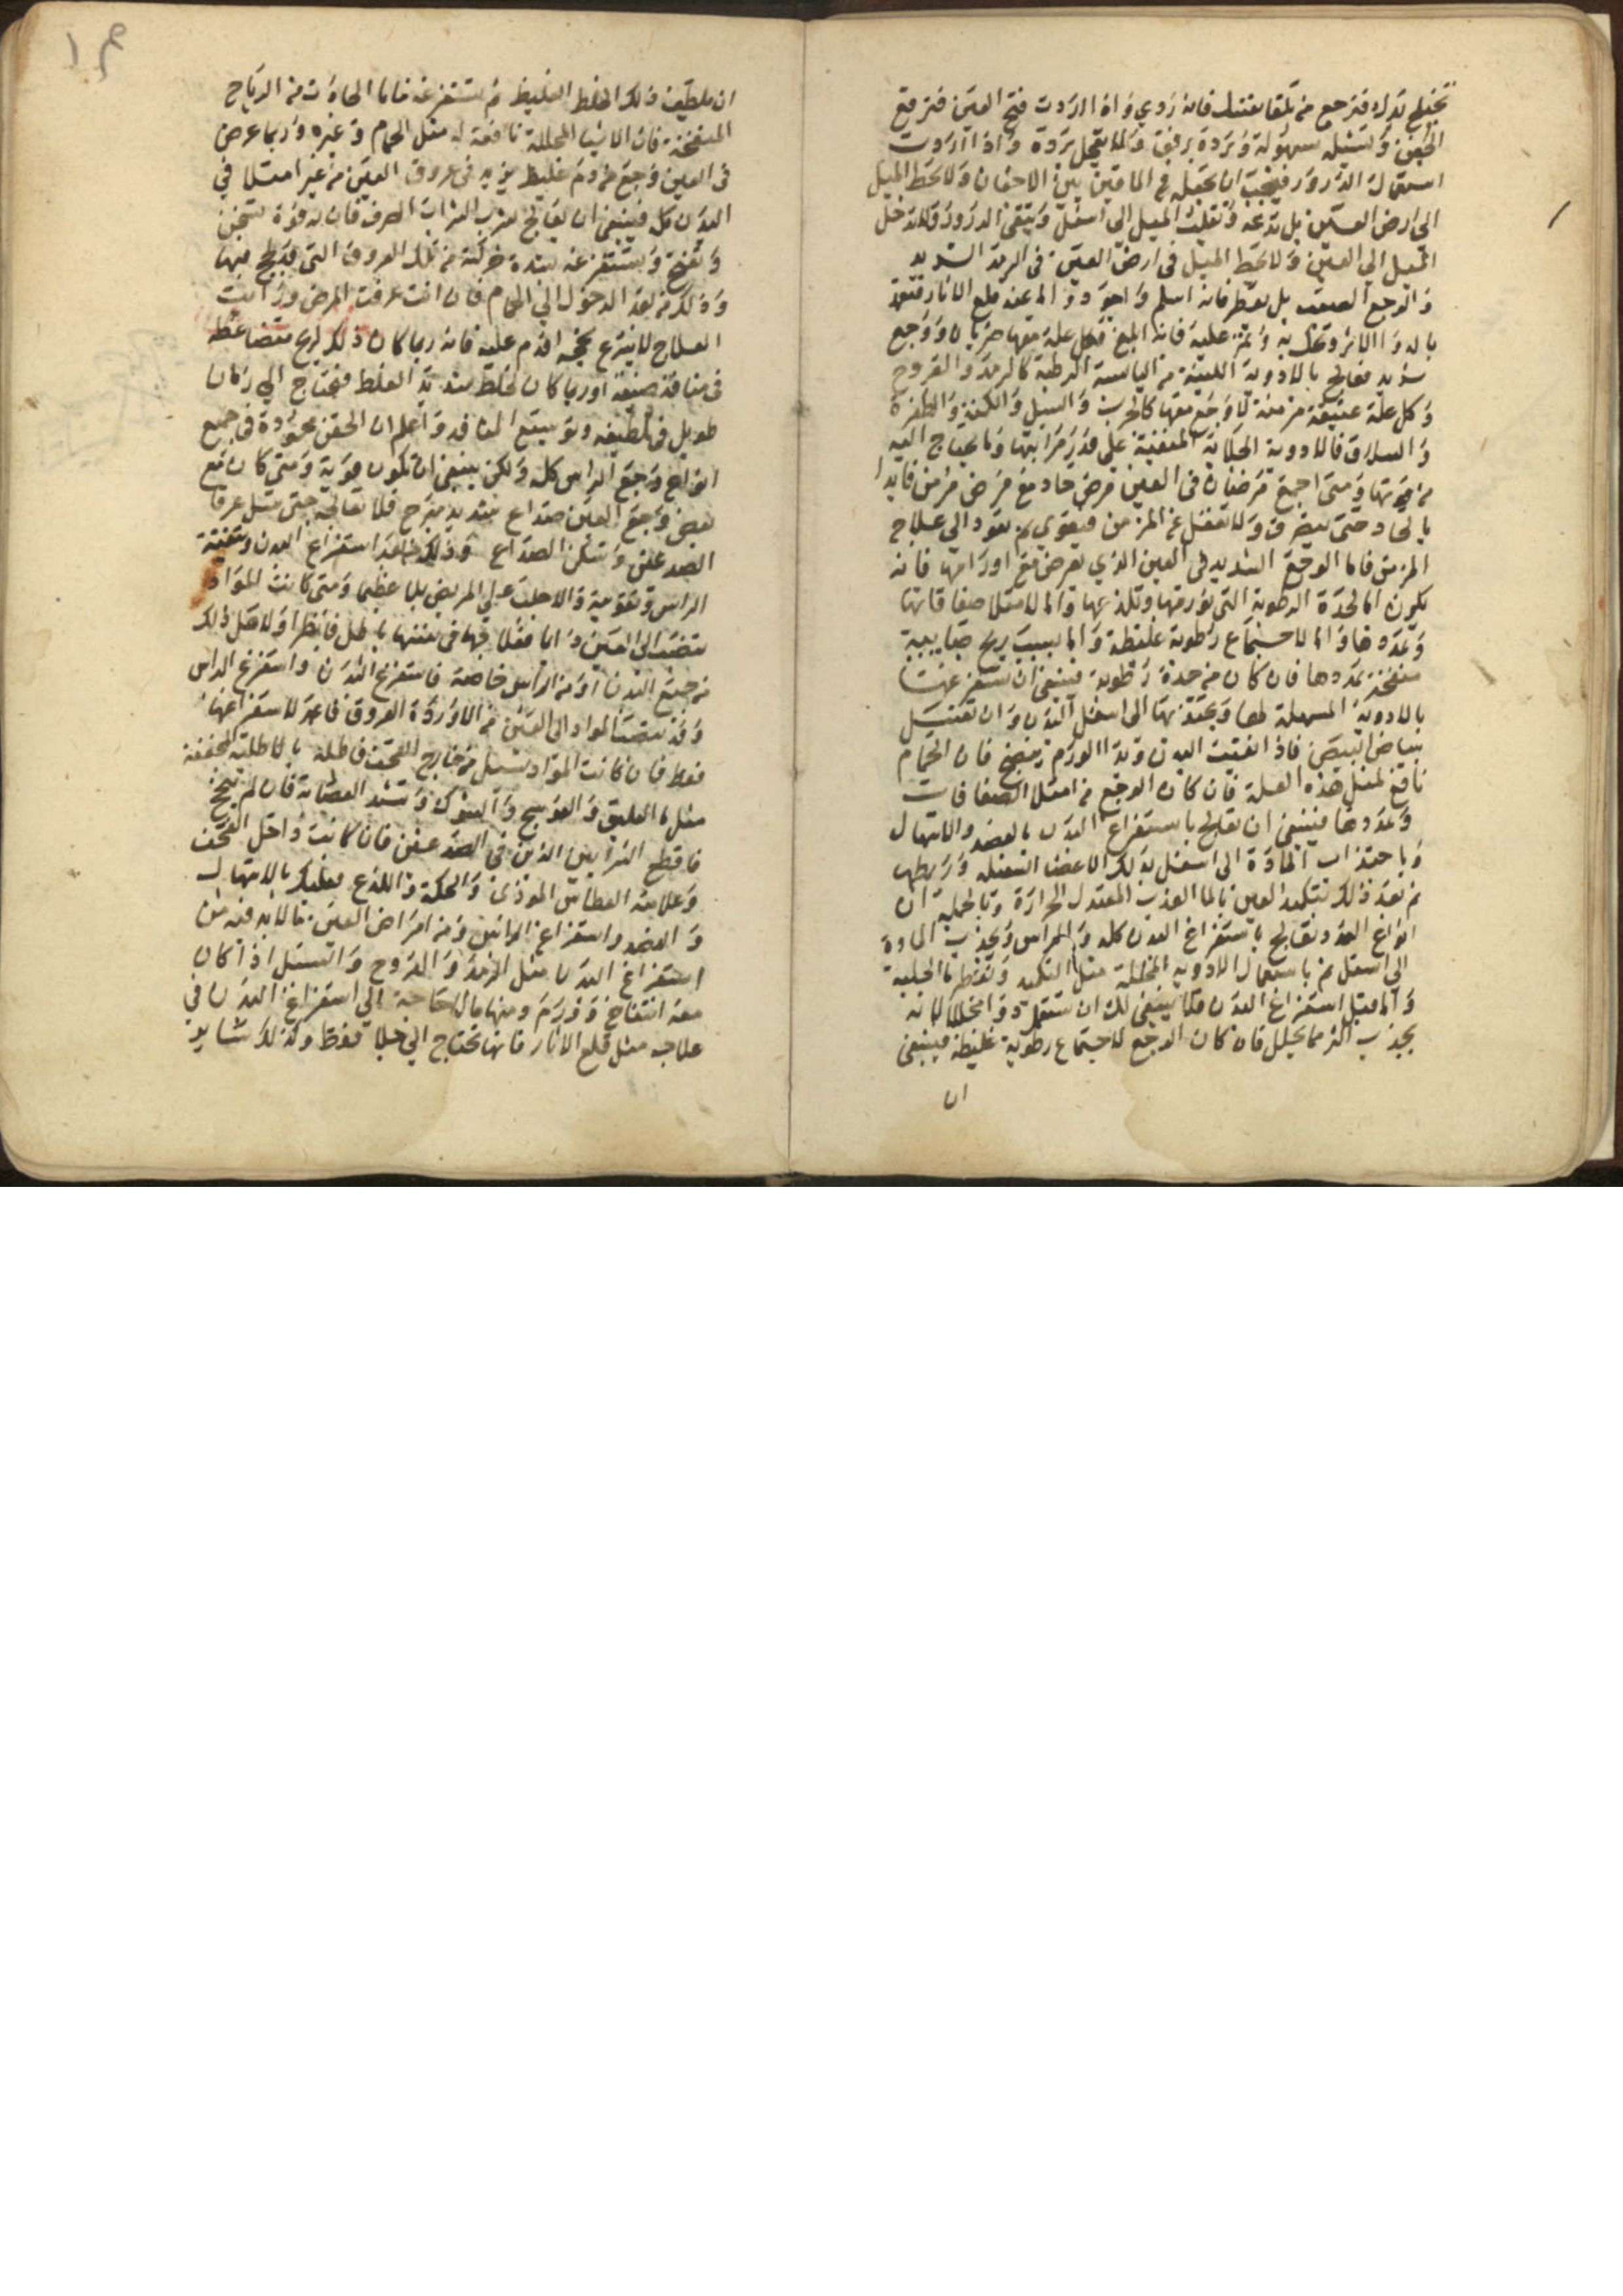 تخيلي يدك فترجع من تلقا نفسك فانه ردي واذا اردت فتح العين فترفع
الجفن وتشيله بسهولة وترده برفق ولا تعجل برده واذا اردت
استعمال الذرور فيجب ان تجعله في الماقين بين الاجفان ولا تحط الميل
الى ارض العين بل تدعه وتقلب الميل الى اسفل ويتقى الذرور ولا تدخل
الميل الى العين ولا تحط الميل في ارض العين في الرمد الشديد
والوجع الصعب بل يقطر فانه اسلم واجود واما عند قلع الاثار فتعمد
بالدوا الاثر وتحك به وتمر عليه فانه ابلغ فكل علة معها ضربان ووجع
شديد فعالج بالادوية اللينة من اليابسة الرطبة كالرمد والقروح
وكل علة عتيقة مزمنة لا وجع معها كالجرب والسبل والكمنة والظفرة
والسلاق فالادوية الجلاية المنقية على قدر مراتبها وما يحتاج اليه
من قوتها ومتى اجتمع مرضان في العين مرض حاد مع مرض مزمن فابدا
بالحاد حتى ينصرف ولا تغفل عن المزمن فيقوى ثم تعود الى علاج
المزمن فاما الوجع الشديد في العين الذي يعرض مع اورامها فانه
يكون اما لحدة الرطوبة التي تورمها وتلذعها واما لامتلا صفاقاتها
وتمددها واما لاجتماع رطوبة غليظة واما بسبب ريح ضبابية
منفخة تمددها فان كان من حدة رطوبة فينبغي ان تستفرغها
بالادوية المسهلة لها وبجذبها الى اسفل البدن وان تغسل
ببياض البيض فاذا نقيت البدن وبدا الورم ينضج فان الحمام
نافع لمثل هذه العلة فان كان الوجع من امتلا الصفاقات
وتمددها فينبغي ان تعالج باستفراغ البدن بالفصد والاسهال
وباجتذاب المادة الى اسفل بدلك الاعضا السفله وربطها
ثم بعد ذلك بتكميد العين بالما العذب المعتدل الحرارة وبالجملة ان
انواع المد وتعالج باستفراغ البدن كله والراس وبجذب المادة
الى اسفل ثم باستعمال الادوية المحللة مثل التكميد وتقطير ما الحلبة
واما قبل استفراغ البدن فلا ينبغي لك ان تستعمل دوا محللا لانه
يجذب اكثر مما يحلل فان كان الوجع لاجتماع رطوبة غليظة فينبغي
ان
١٩
ان تلطف ذلك الخلط الغليظ ثم تستفرغه فاما الحادث من الرياح
المنفخة فان الاشيا المحللة نافعة له مثل الحمام وغيره وربما عرض
في العين وجع من دم غليظ يزيد في عروق العين من غير امتلا في
البدن كله فينبغي ان يعالج بشرب الشراب الصرف فان له قوة تسخن
وتفتح وتستفرغه بشدة حركته من تلك العروق التي قد لحج فيها
وذلك من بعد الدخول الى الحمام فان انت عرفت المرض ورايت
العلاج لا يسرع نجحه اقدم عليه فانه ربما كان ذلك لريح متضاعطة
في منافذ ضيقة او ربما كان لخلط شديد الغلظ فيحتاج الى زمان
طويل في تلطيفه وتوسيع المنافذ واعلم ان الحقن محمودة في جميع
انواع وجع الراس كله ولكن ينبغي ان تكون قوية ومتى كان مع
بعض وجع العين صداع شديد مبرح فلا تعالجه حتى تسل عرقا
الصدغين وتسكن الصداع وذلك بعد استفراغ البدن وتنقية
الراس وتقويته والا جلبت على المريض بلا عظيما ومتى كانت المواد
تنصب الى العين واما فعلاجها في نفسها باطل فانظر اولا هل ذلك
من جميع البدن او من الراس خاصة فاستفرغ البدن واستفرغ الراس
وقد تنصب المواد الى العين من الاوردة العروق فاعمد لاستفراغها
فقط فان كانت المواد تسيل من خارج القحف فاطله بالاطلية المجففة
مثل ما العليق والعوسج والشوك وتشد العصابة فان لم ينجح
فاقطع الشرايين الذين في الصدغين فان كانت داخل القحف
وعلامته العطاس الموذي والحكة واللذع فعليك بالاسهال
والفصد واستفراغ الراس ومن امراض العين ما لا بد فيه من
استفراغ البدن مثل الرمد والقروح والسبل اذا كان
معه انتفاخ وورم ومنها ما لا حاجة الى استفراغ البدن في
علاجه مثل قلع الاثار فانها تحتاج الى جلا فقط وكذلك سائر